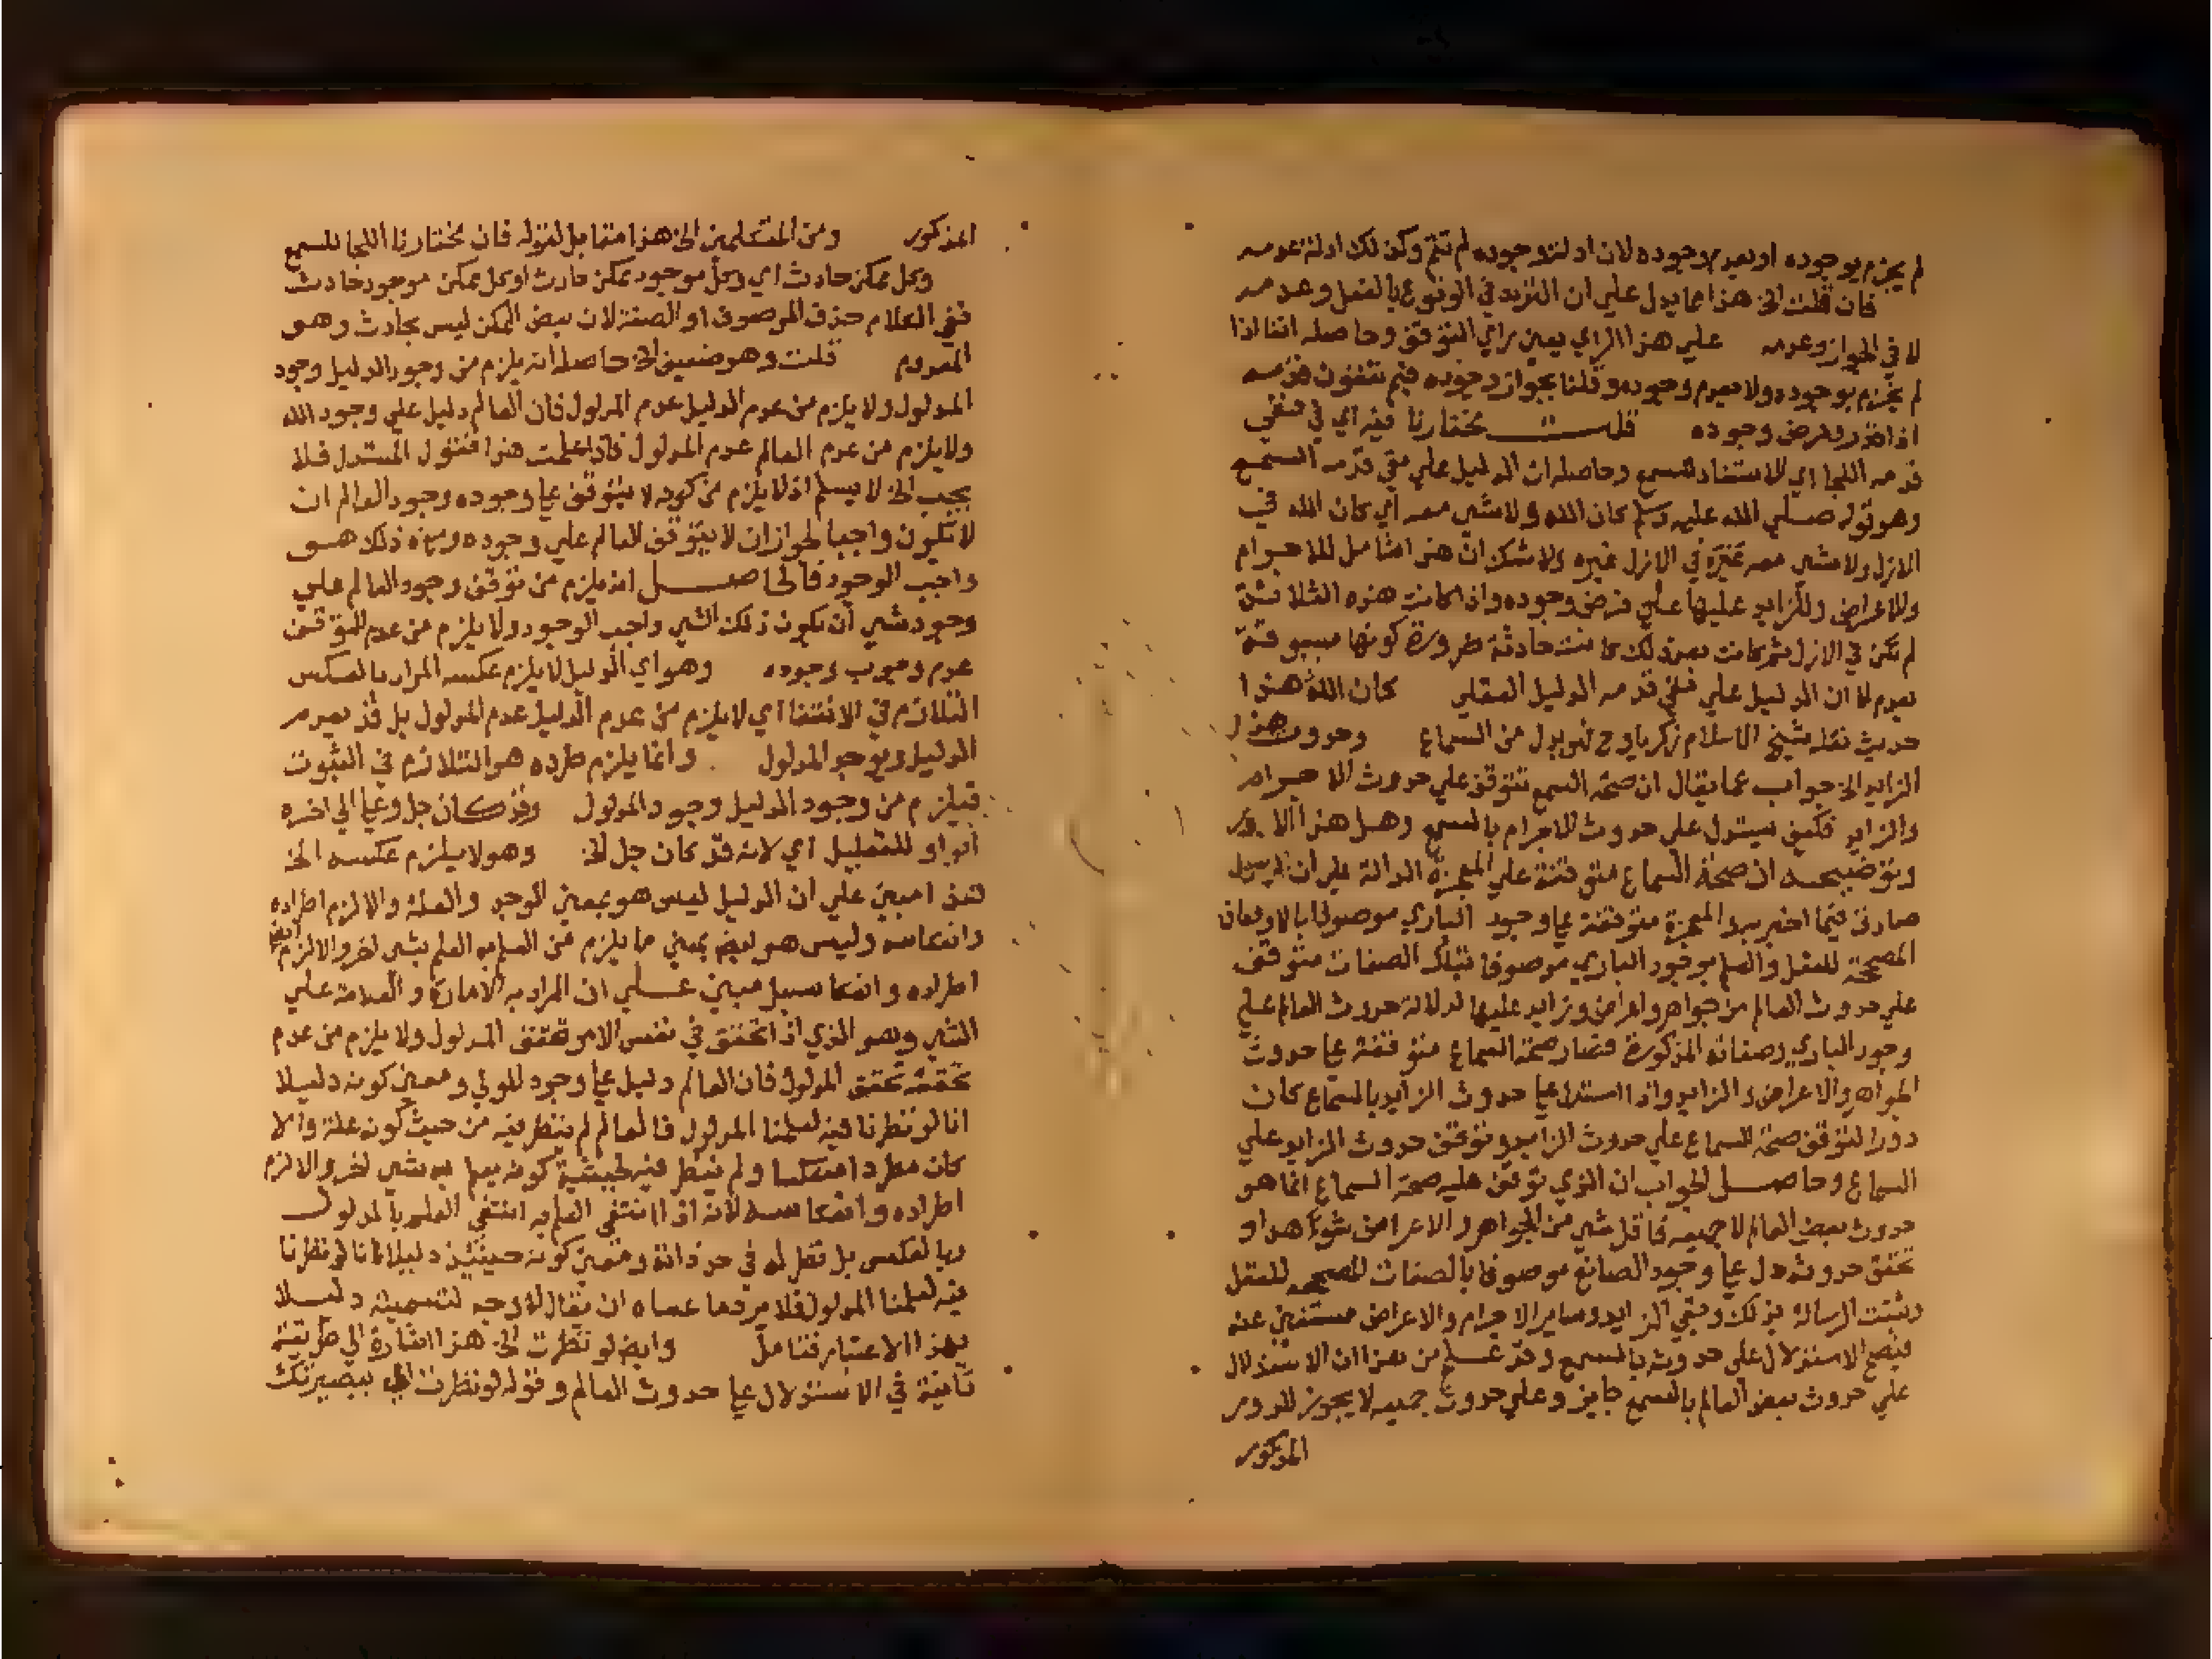 لم يجزم بوجوده او بعدم وجوده لان ادلة وجوده لم تتم وكذلك ادلة عدمه
فان قلت الخ هذا مما يدل علي ان التردد في الوقوع بالفعل وعدمه
لا في الجواز وعدمه علي هذا الراي يعني راي التوقف وحاصله اننا اذا
لم نجزم بوجوده ولا بعدم وجوده وقلنا بجواز وجوده فبم تنفون قدمه
اذا قدر وفرض وجوده قلت مختارنا فيه اي في نفي
قدمه اللجا اي الاستناد للسمع وحاصله ان الدليل علي نفي قدمه السمع
وهو قوله صلي الله عليه وسلم كان الله ولا شي معه اي كان الله في
الازل ولا شي معه غيره في الازل غيره ولا شك ان هذا شامل للاجرام
وللاعراض وللزايد عليها علي فرض وجوده واذا كانت هذه الثلاثة
لم تكن في الازل ثم كانت بعد ذلك كانت حادثة ضرورة كونها مسبوقة
بعدم لا ان الدليل علي نفي قدمه الدليل العقلي كان الله هذا
حديث نقله شيخ الاسلام زكريا وح فهو بدل من السماع وحدوث هذا
الزايد الخ جواب عما يقال ان صحة السمع تتوقف علي حدوث الاجرام
والزايد فكيف يستدل علي حدوث الاجرام بالسمع وهل هذا الا دور
وتوضيحه ان صحة السماع متوقفة علي المعجزة الدالة علي ان الرسول
صادق فيما اخبر به والمعجزة متوقفة علي وجود الباري موصوفا بالاوصاف
المصححة للفعل والعلم بوجود الباري موصوفا بتلك الصفات متوقف
علي حدوث العالم من جواهر واعراض وزايد عليها لدلالة حدوث العالم علي
وجود الباري وصفاته المذكورة فصار صحة السماع متوقفة علي حدوث
الجواهر والاعراض والزايد واذا استدل علي حدوث الزايد بالسماع كان
دورا لتوقف صحة السماع علي حدوث الزايد وتوقف حدوث الزايد علي
السماع وحاصل الجواب ان الذي توقف عليه صحة السماع انما هو
حدوث بعض العالم لا جميعه فاقل شي من الجواهر والاعراض شوهد او
تحقق حدوثه دل علي وجود الصانع موصوفا بالصفات المصححه للفعل
وثبتت الرسالة بذلك وبقي الزايد وساير الاجرام والاعراض مستغني عنه
فيصح الاستدلال علي حدوثه بالسمع وقد علم من هذا ان الاستدلال
علي حدوث بعض العالم بالسمع جايز وعلي حدوث جميعه لا يجوز للدور
المذكور
المذكور ومن المتكلمين الخ هذا مقابل لقوله فان مختارنا اللجا للسمع
وكل ممكن حادث اي وكل موجود ممكن حادث او كل ممكن موجود حادث
ففي الكلام حذف الموصوف او الصفة لان بعض الممكن ليس بحادث وهو
المعدوم قلت وهو ضعيف الخ حاصله انه يلزم من وجود الدليل وجود
المدلول ولا يلزم من عدم الدليل عدم المدلول فان العالم دليل علي وجود الله
ولا يلزم من عدم العالم عدم المدلول فاذا علمت هذا فنقول المستدل فلا
يجب الخ لا يسلم اذ لا يلزم من كونه لا يتوقف علي وجوده وجود العالم ان
لا تكون واجبا لجواز ان لا يتوقف العالم علي وجوده ومع ذلك هو
واجب الوجود فالحاصل انه يلزم من توقف وجود العالم علي
وجود شي ان يكون ذلك الشي واجب الوجود ولا يلزم من عدم التوقف
عدم وجوب وجوده وهو اي الدليل لا يلزم عكسه المراد بالعكس
التلازم في الانتفا اي لا يلزم من عدم الدليل عدم المدلول بل قد يعدم
الدليل ويوجد المدلول وانما يلزم طرده هو التلازم في الثبوت
فيلزم من وجود الدليل وجود المدلول وقد كان جل وعلا الي اخره
الواو للتعليل اي لانه قد كان جل الخ وهو لا يلزم عكسه الخ
هذا مبني علي ان الدليل ليس هو بمعني الموجد والعلة والا لزم اطراده
وانعكاسه وليس هو ايضا بمعني ما يلزم من العلم به العلم بشي اخر والا لزم ايضا
اطراده وانعكاسه بل مبني علي ان المراد به الامارة والعلامة علي
الشي وهو الذي اذا تحقق في نفس الامر تحقق المدلول ولا يلزم من عدم
تحققه تحقق المدلول فان العالم دليل علي وجود المولي ومعني كونه دليلا
انا لو نظرنا فيه لعلمنا المدلول فالعالم لم ينظر فيه من حيث كونه علة والا
كان مطردا منعكسا ولم ينظر فيه لحيثية كونه يعلم به شي اخر والا لزم
اطراده وانعكاسه لانه اذا انتفي العلم به انتفي العلم بالمدلول
وبالعكس بل نظر له في حد ذاته ومعني كونه حينئذ دليلا انا لو نظرنا
فيه لعلمنا المدلول فلا يرد ما عساه ان يقال لا وجه لتسميته دليلا
بهذا الاعتبار فتامل وايض لو نظرت الخ هذا اشارة الي طريقة
ثانية في الاستدلال علي حدوث العالم وقوله لو نظرت اي ببصيرتك